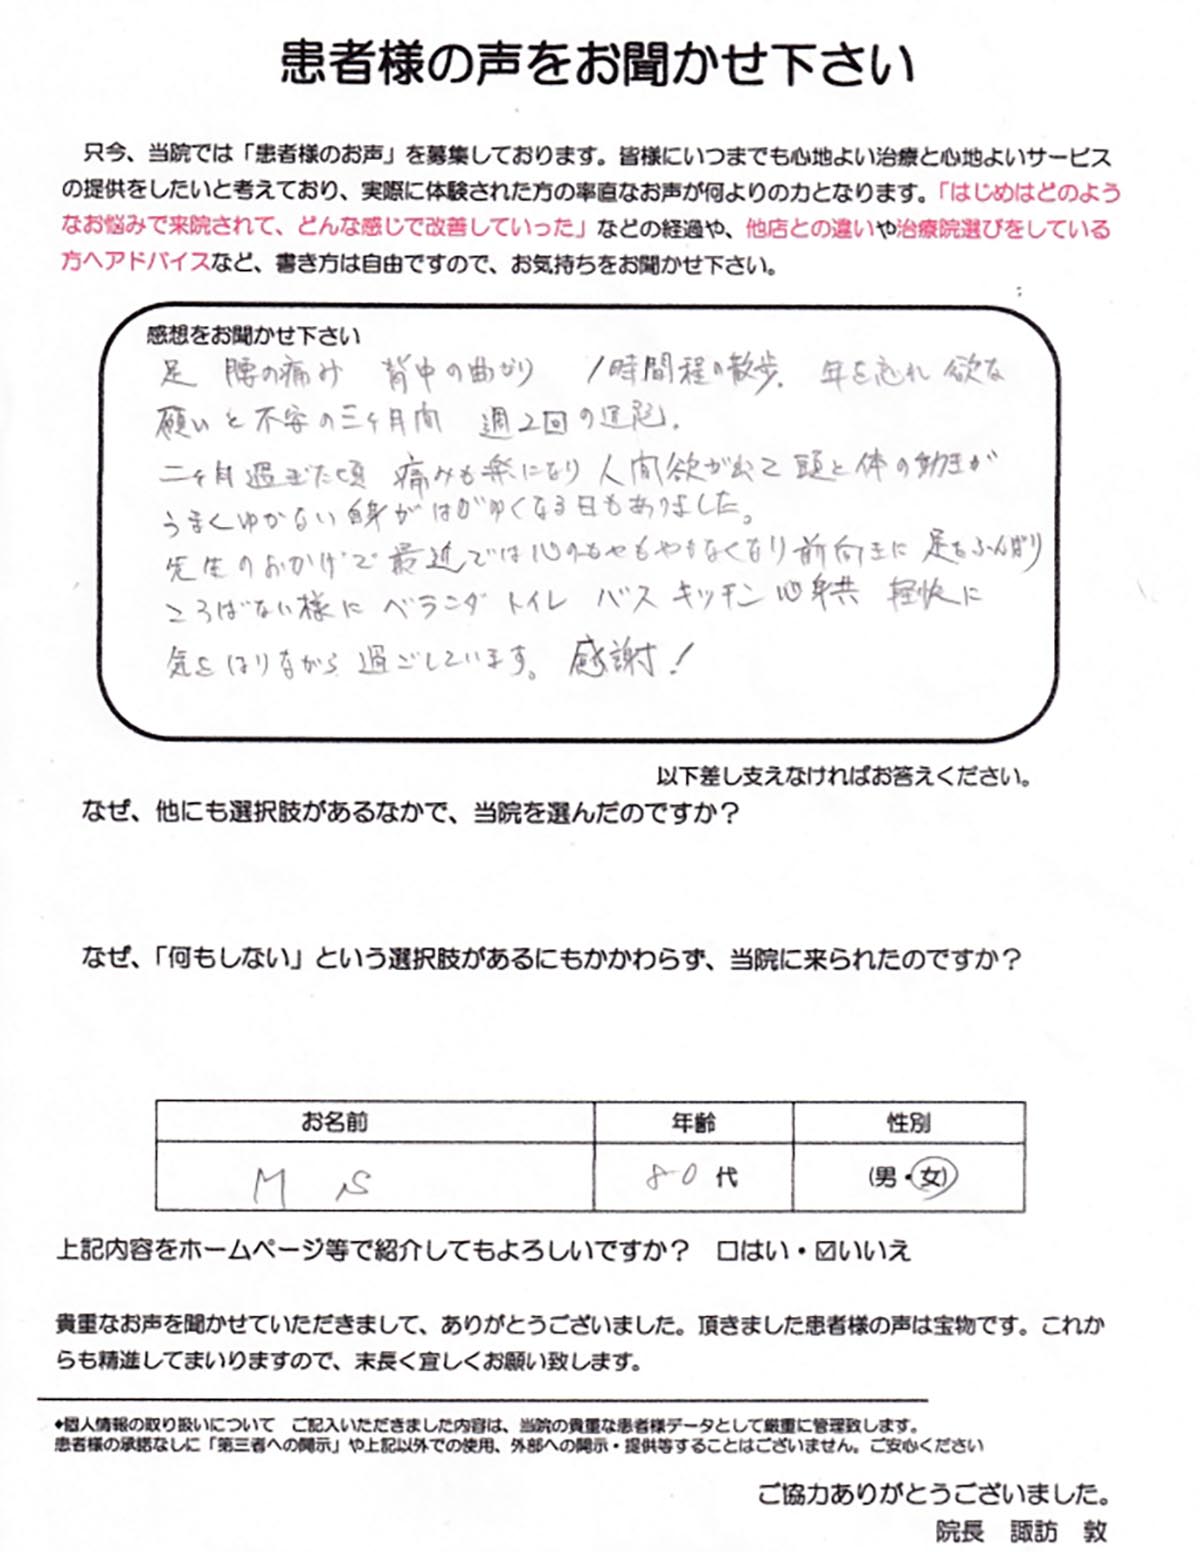 患者様の声をお聞かせ下さい
只今、当院では「患者様のお声」を募集しております。皆様にいつまでも心地よい治療と心地よいサービス
の提供をしたいと考えており、実際に体験された方の率直なお声が何よりの力となります。「はじめはどのよう
なお悩みで来院されて、どんな感じで改善していった」などの経過や、他店との違いや治療院選びをしている
方へアドバイスなど、書き方は自由ですので、お気持ちをお聞かせ下さい。
感想をお聞かせ下さい
足 腰の痛み 背中の曲がり 1時間程の散歩、年を忘れ 欲な
願いと不安の三ヶ月間 週2回の
二ヶ月過ぎた頃 痛みも楽になり 人間欲が出て 頭と体の動きが
うまくゆかない自身がはがゆくなる日もありました。
先生のおかげで最近では心のもやもやもなくなり前向きに足をふんばり
ころばない様に ベランダ トイレ バス キッチン 心身共 軽快に
気をはりながら過ごしています。感謝!
以下差し支えなければお答えください。
なぜ、他にも選択肢があるなかで、当院を選んだのですか？
なぜ、「何もしない」という選択肢があるにもかかわらず、当院に来られたのですか？
お名前 年齢 性別
M S 80代 (男・女)
上記内容をホームページ等で紹介してもよろしいですか？ □はい・☑いいえ
貴重なお声を聞かせていただきまして、ありがとうございました。頂きました患者様の声は宝物です。これか
らも精進してまいりますので、末長く宜しくお願い致します。
◆個人情報の取り扱いについて ご記入いただきました内容は、当院の貴重な患者様データとして厳重に管理致します。
患者様の承諾なしに「第三者への開示」や上記以外での使用、外部への開示・提供等することはございません。ご安心ください
ご協力ありがとうございました。
院長 諏訪 敦